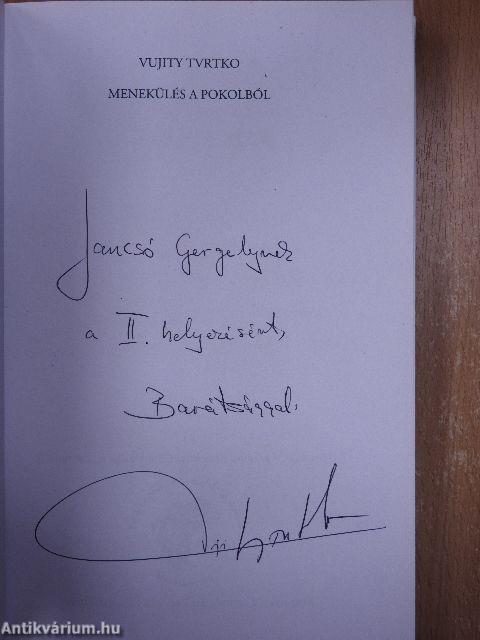 VUJITY TVRTKO
MENEKÜLÉS A POKOLBÓL
Jancsó Gergelynek
a II. helyezésért,
Barátsággal.
Antikvárium.hu